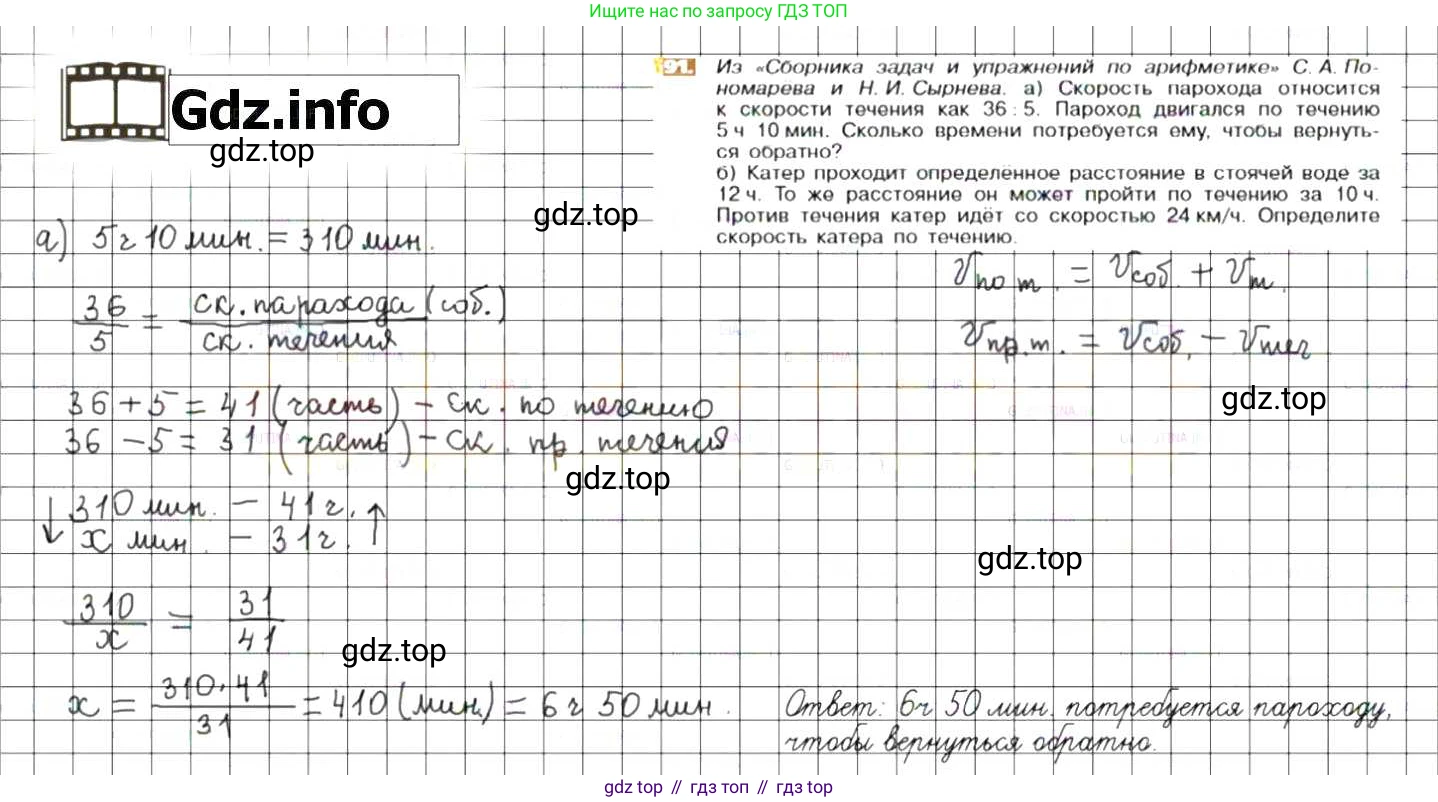 Ищите нас по запросу ГДЗ ТОП
Gdz.info
gdz.top
91. Из «Сборника задач и упражнений по арифметике» С. А. По-
номарева и Н. И. Сырнева. а) Скорость парохода относится
к скорости течения как 36 : 5. Пароход двигался по течению
5 ч 10 мин. Сколько времени потребуется ему, чтобы вернуть-
ся обратно?
б) Катер проходит определённое расстояние в стоячей воде за
12 ч. То же расстояние он может пройти по течению за 10 ч.
Против течения катер идёт со скоростью 24 км/ч. Определите
скорость катера по течению.
gdz.top
а) 5 ч 10 мин. = 310 мин.
36/5 = ск. парахода (соб.)/ск. течения
Vпо т. = Vсоб. + Vт.
Vпр.т. = Vсоб. − Vтеч
gdz.top
36 + 5 = 41 (часть) − ск. по течению
36 − 5 = 31 (часть) − ск. пр. течения
gdz.top
↓ 310 мин. − 41 ч. ↑
x мин. − 31 ч.
gdz.top
310/x = 31/41
gdz.top
x = 310·41/31 = 410 (мин.) = 6 ч 50 мин.
Ответ: 6 ч 50 мин. потребуется пароходу,
чтобы вернуться обратно.
gdz.top // гдз топ // gdz top